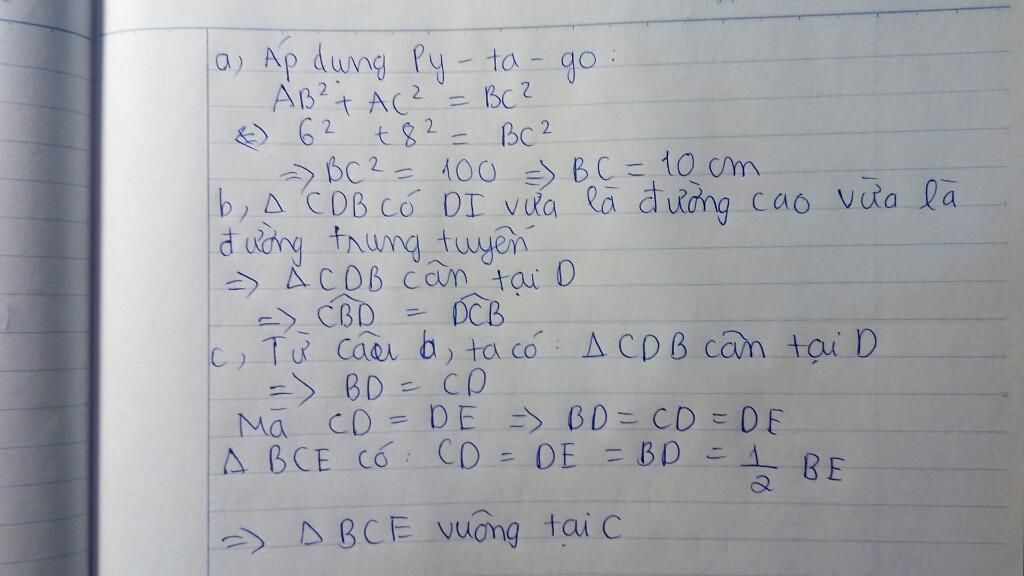 a, Áp dụng Py - ta - go:
AB² + AC² = BC²
<=> 6² + 8² = BC²
=> BC² = 100 => BC = 10 cm
b, Δ CDB có DI vừa là đường cao vừa là
đường trung tuyến
=> Δ CDB cân tại D
=> \widehat{CBD} = \widehat{DCB}
c, Từ câu b, ta có: Δ CDB cân tại D
=> BD = CD
Mà CD = DE => BD = CD = DE
Δ BCE có: CD = DE = BD = 1/2 BE
=> Δ BCE vuông tại C